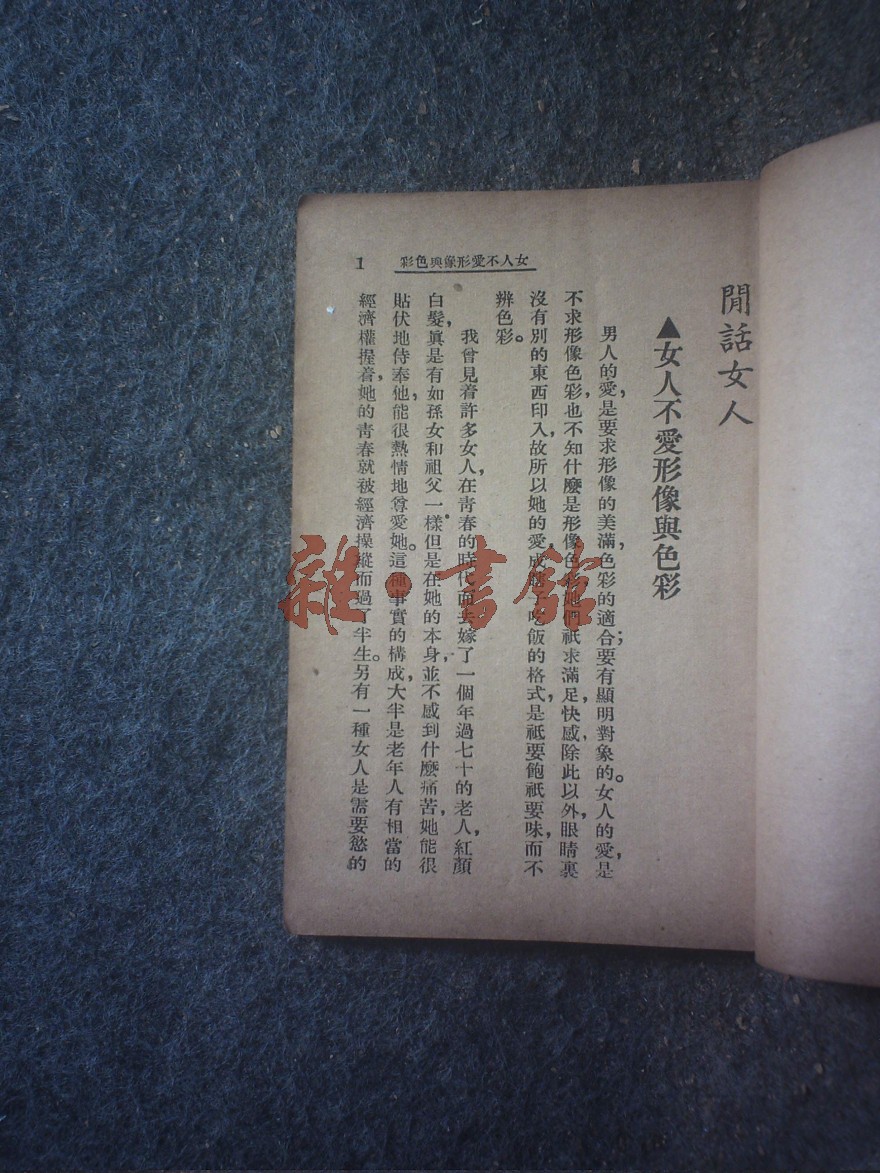 閒話女人
▲女人不愛形像與色彩
男人的愛,是要求形像的美滿,色彩的適合;要有顯明對象的。女人的愛,是
不求形像色彩,也不知什麼是形像色彩,她們祇求滿足,快感,除此以外,眼睛裏
沒有別的東西印入,故所以她的愛,成了吃飯的格式,是祇要飽祇要味,而不
辨色彩。
我曾見着許多女人,在靑春的時代而去嫁了一個年過七十的老人,紅顏
白髮,眞是有如孫女和祖父一樣。但是在她的本身,並不感到什麼痛苦,她能很
貼伏地侍奉他,能很熱情地尊愛她。這種事實的構成,大半是老年人有相當的
經濟權握着,她的靑春就被經濟操縱而過了半生。另有一種女人是需要慾的
女人不愛形像與色彩
1
雜·書館